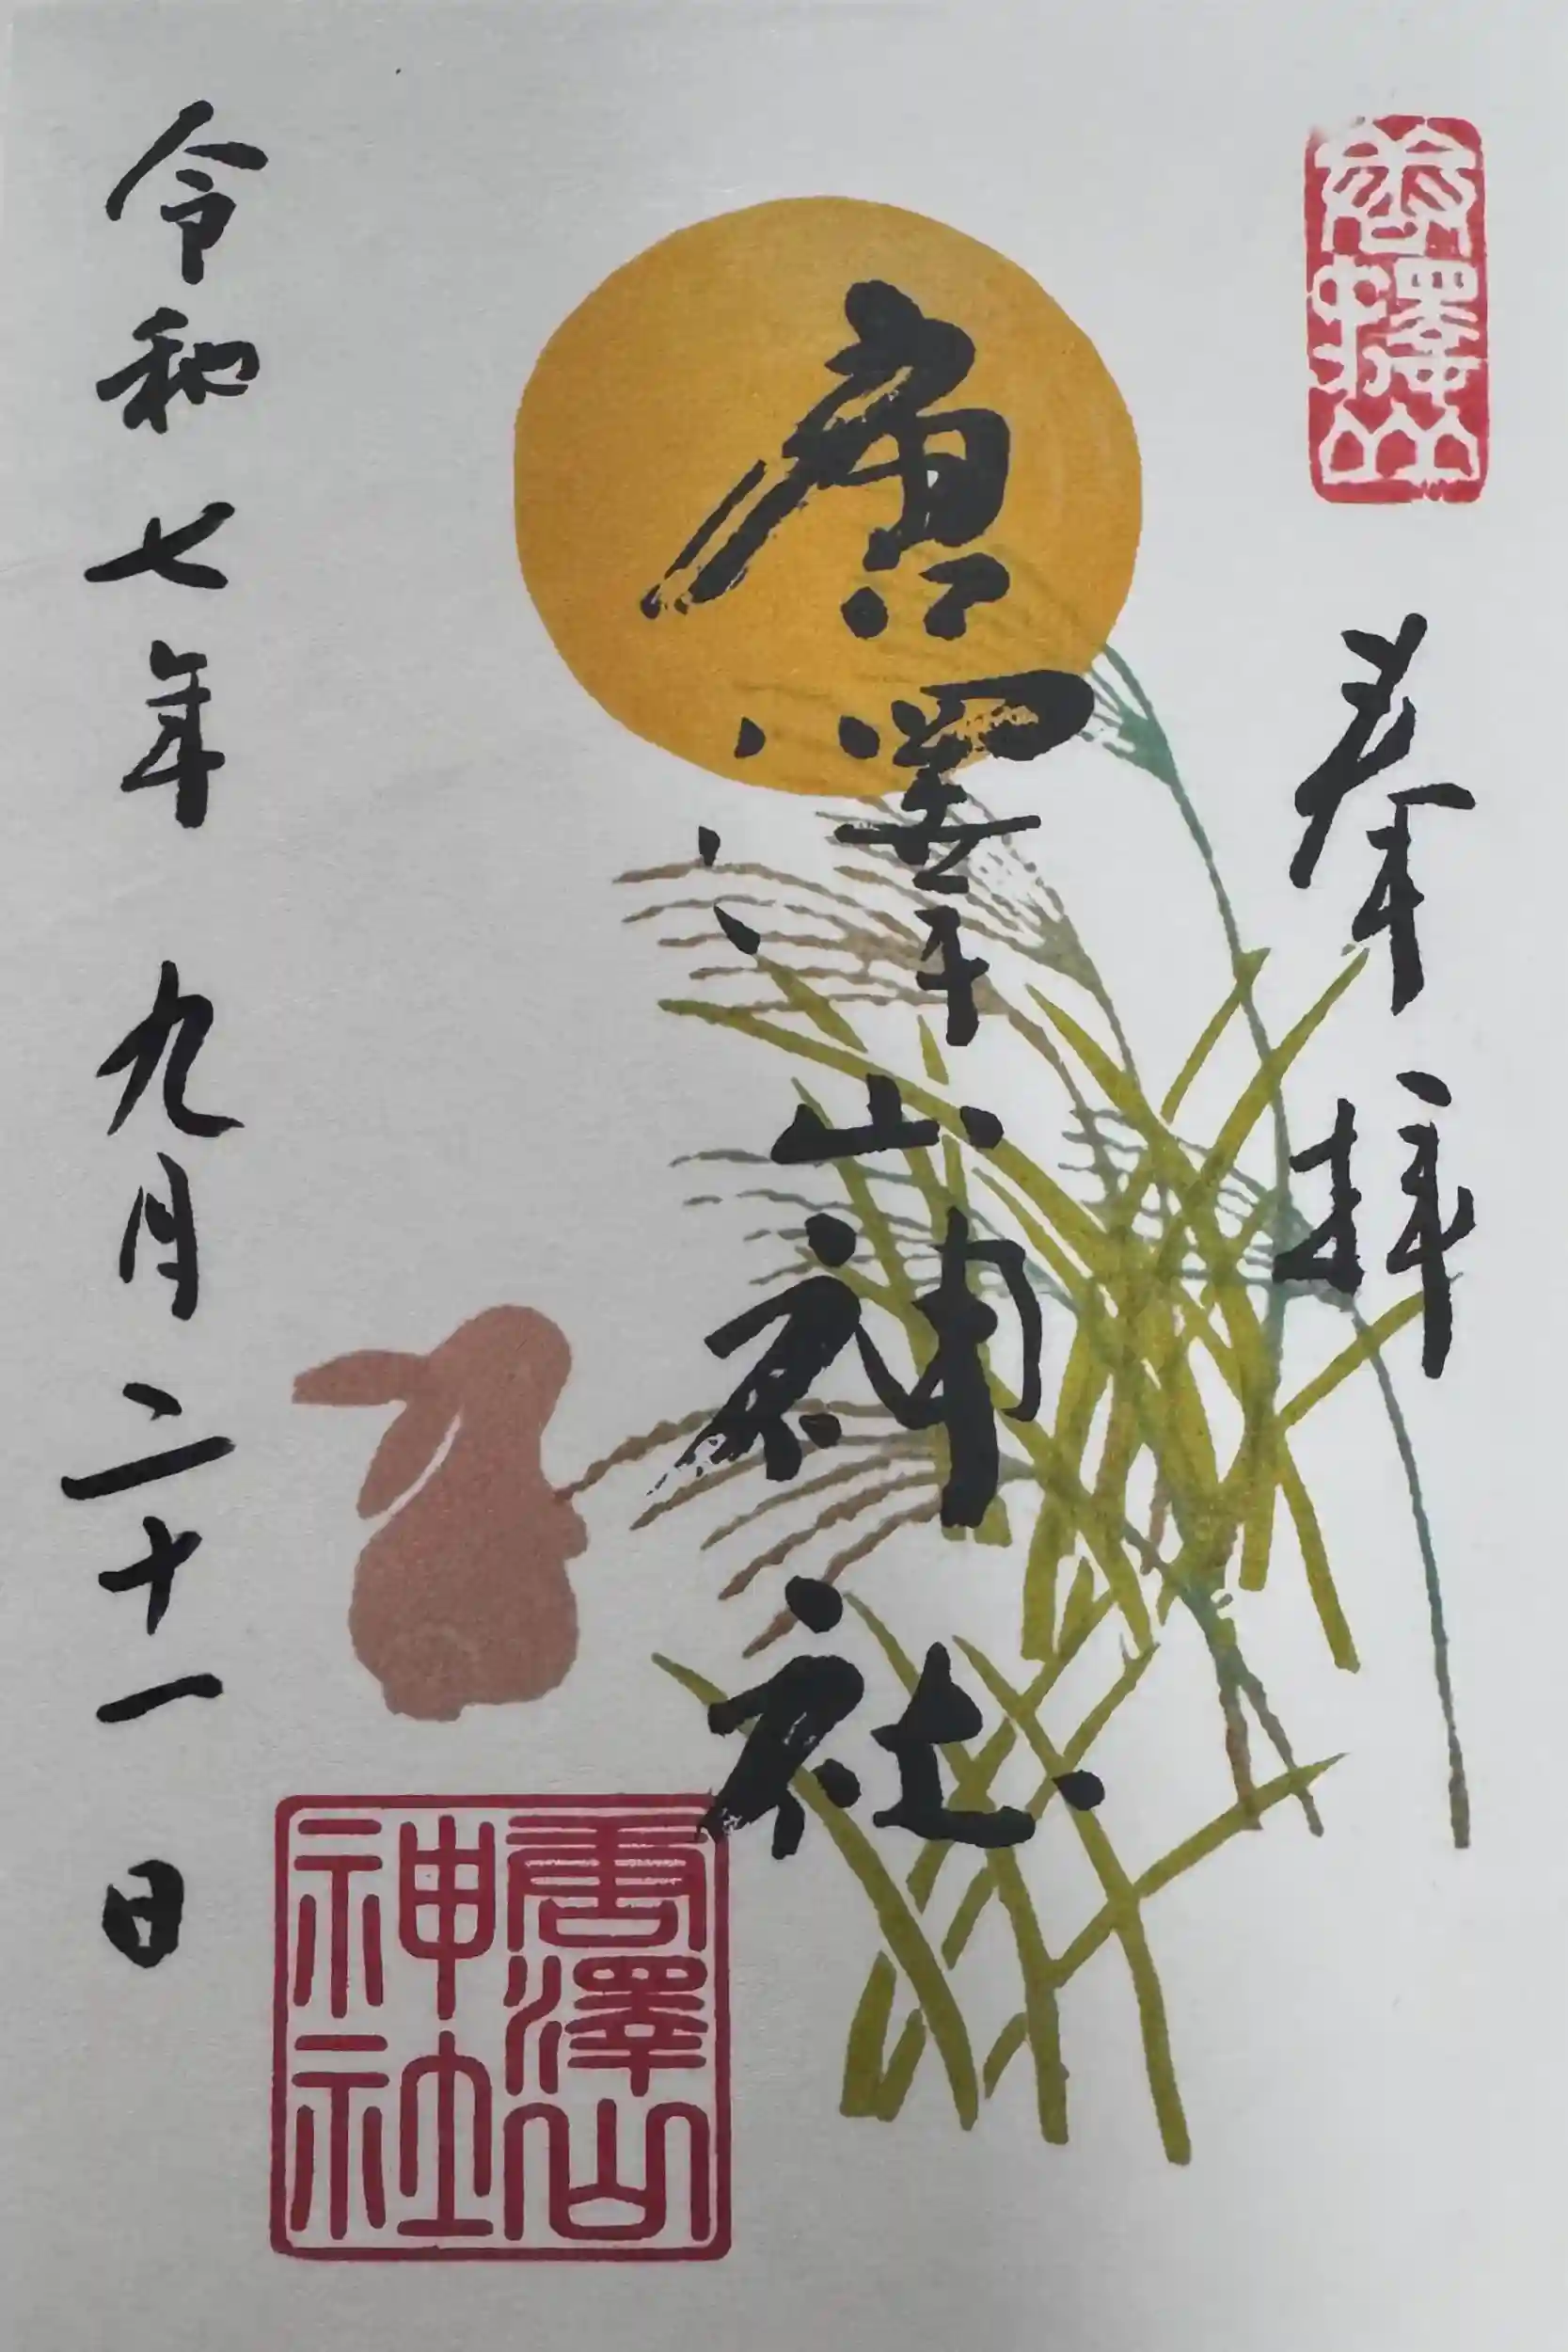 奉拝
唐澤山神社
令和七年九月二十一日
唐澤山
神社